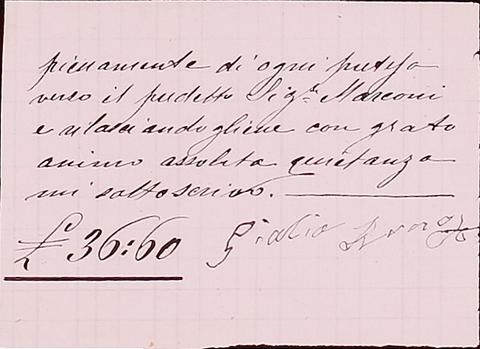 pienamente di ogni pretesa
verso il predetto Sig.r Marconi
e rilasciandogliene con grato
animo assoluta quietanza
mi sottoscrivo.
£ 36:60